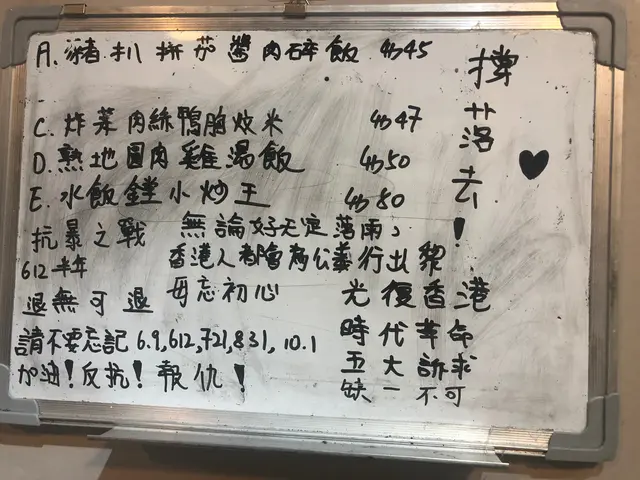 A. 豬扒拼茄醬肉碎飯 $45
C. 炸菜肉絲鴨胸炆米 $47
D. 熟地圓肉雞湯飯 $50
E. 水飯鏜小炒王 $80
撐落去！
抗暴之戰
612半年
退無可退
無論好天定落雨，
香港人都會為公義行出黎
毋忘初心
請不要忘記 6.9,612,721,831, 10.1
加油！反抗！報仇！
光復香港
時代革命
五大訴求
缺一不可